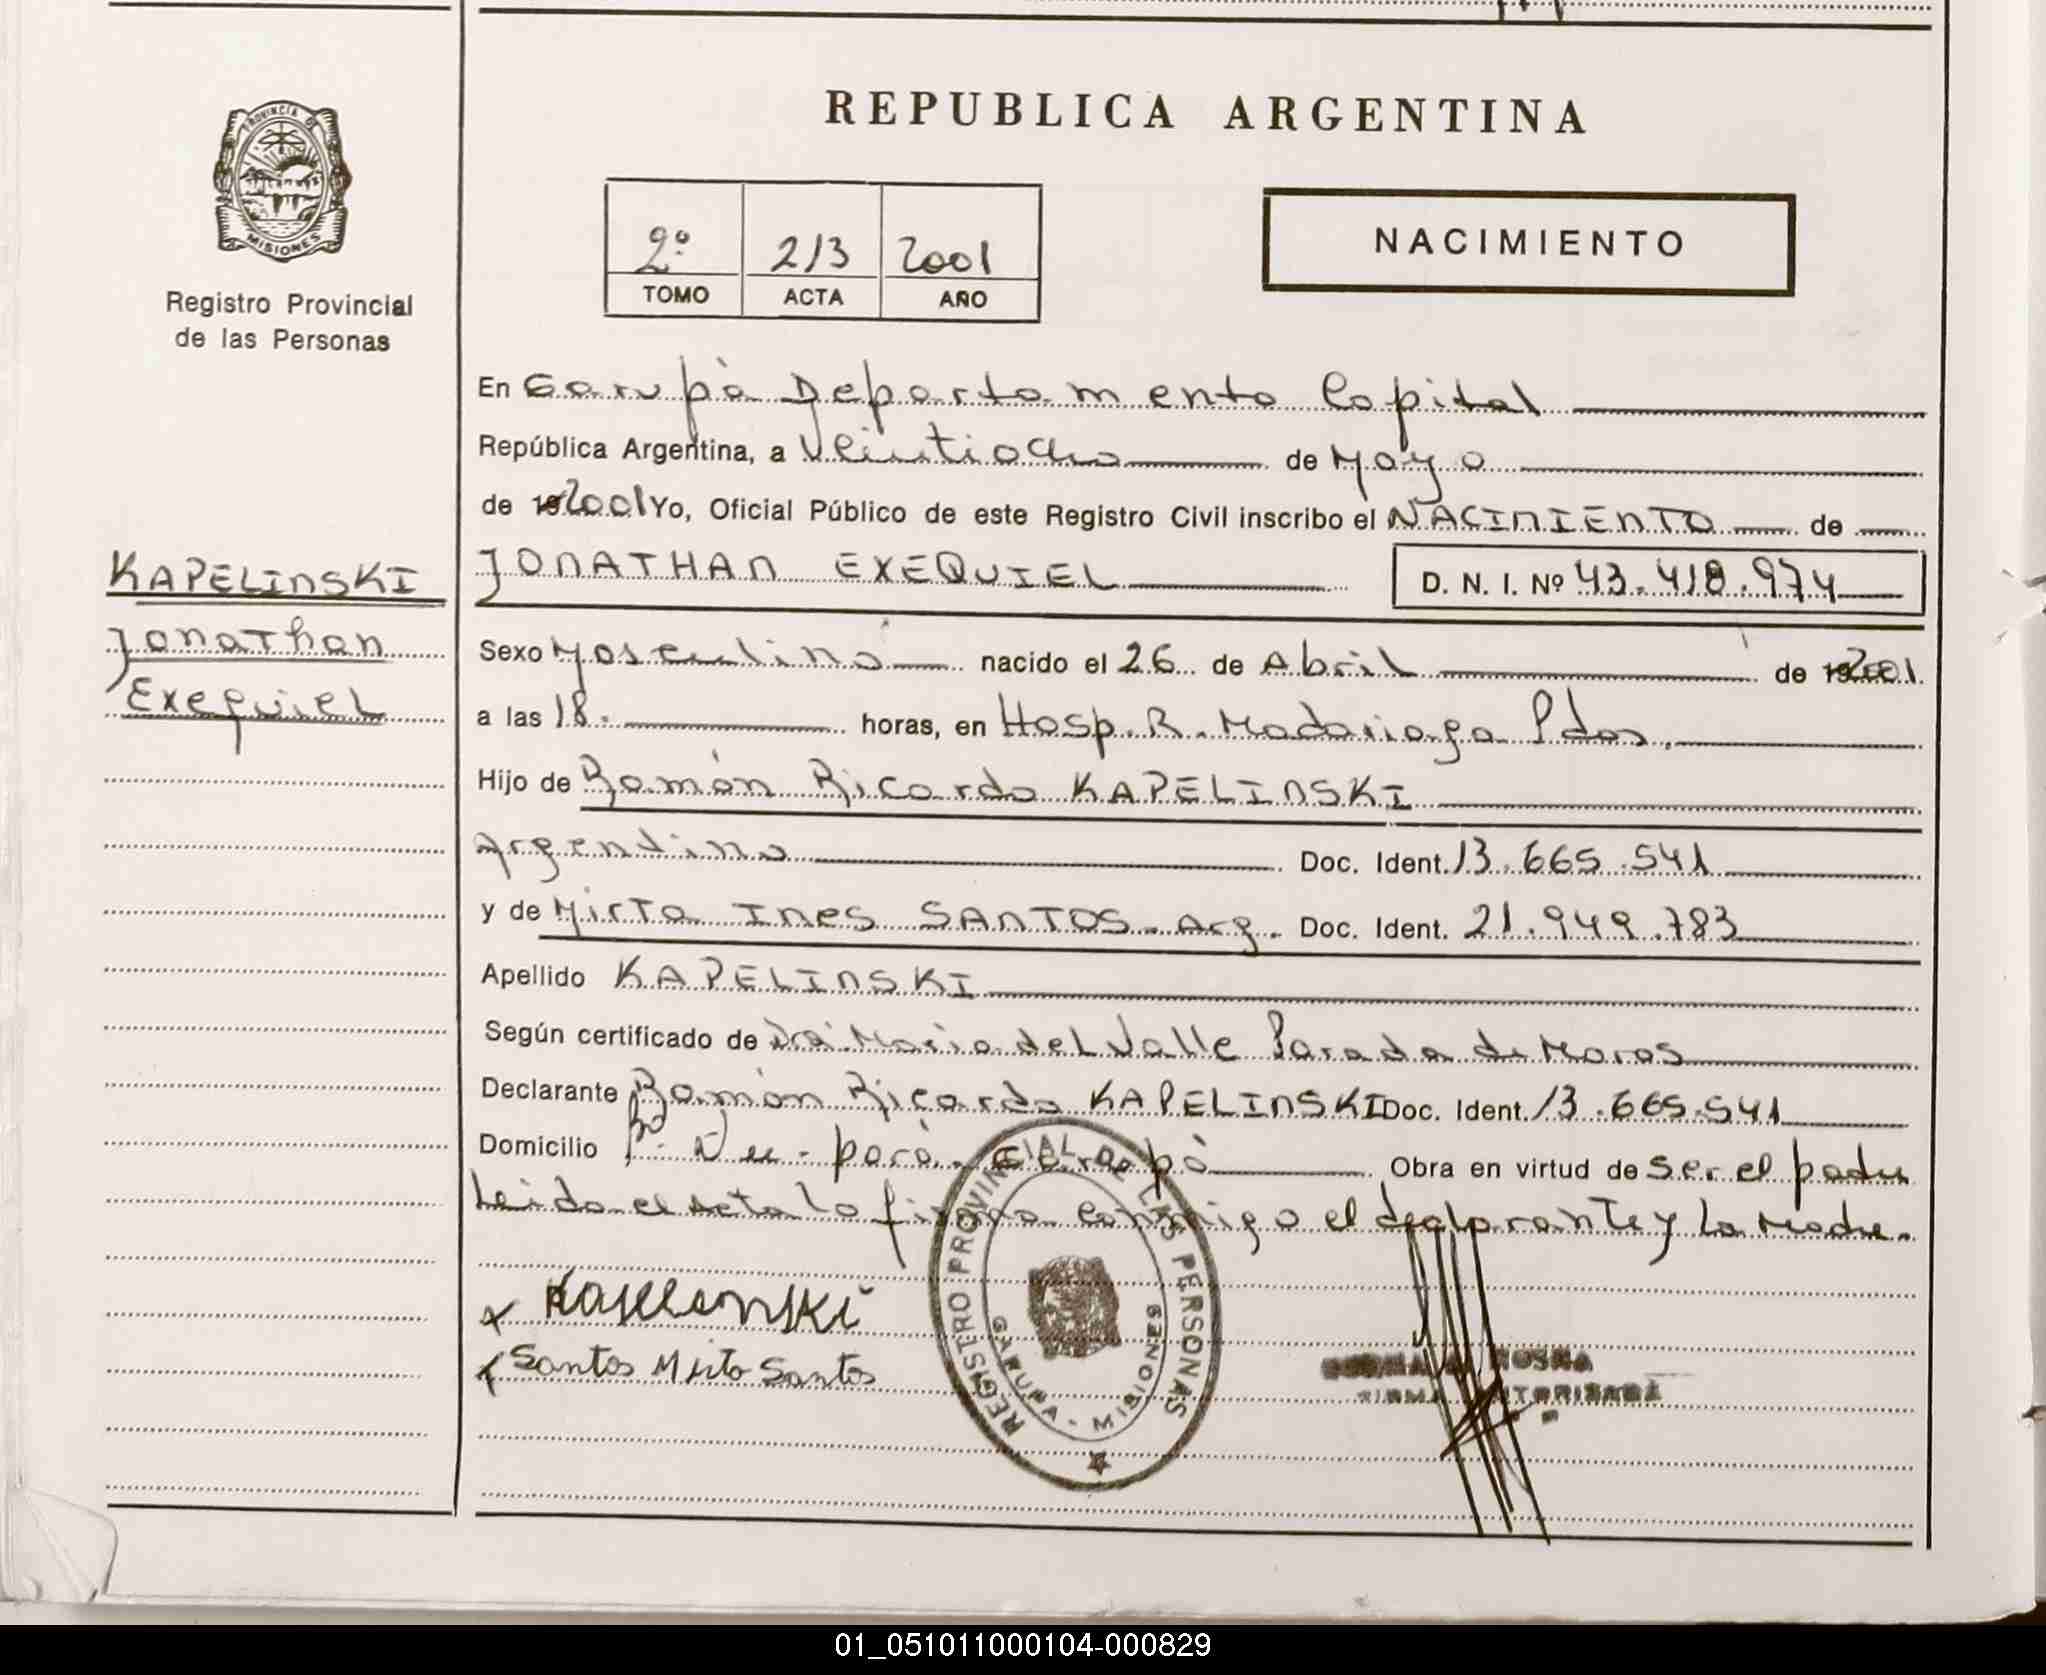 REPUBLICA ARGENTINA
PROVINCIA DE
MISIONES
Registro Provincial
de las Personas
2º 213 2001
TOMO ACTA AÑO
NACIMIENTO
En Garupà Departamento Capital
República Argentina, a Veintiocho de Mayo
de 192001 Yo, Oficial Público de este Registro Civil inscribo el NACIMIENTO de
KAPELINSKI
Jonathan
Exequiel
JONATHAN EXEQUIEL D. N. I. Nº 43.418.974
Sexo Masculino nacido el 26 de Abril de 192001.
a las 18. horas, en Hosp. R. Madariaga Pdas.
Hijo de Ramón Ricardo KAPELINSKI
Argentino Doc. Ident. 13.665.541
y de Mirta Ines SANTOS. Arg. Doc. Ident. 21.949.783
Apellido KAPELINSKI
Según certificado de Dra Maria del Valle Parada de Moras
Declarante Ramón Ricardo KAPELINSKI Doc. Ident. 13.665.541
Domicilio Bº Ñu-porà. Garupà Obra en virtud de ser el padre
Leida el acta la firma conmigo el declarante y la Madre.
x Kapelenski
x Santos Mirta Santos
REGISTRO PROVINCIAL DE LAS PERSONAS
GARUPA - MISIONES
FIRMA AUTORIZADA
01_051011000104-000829